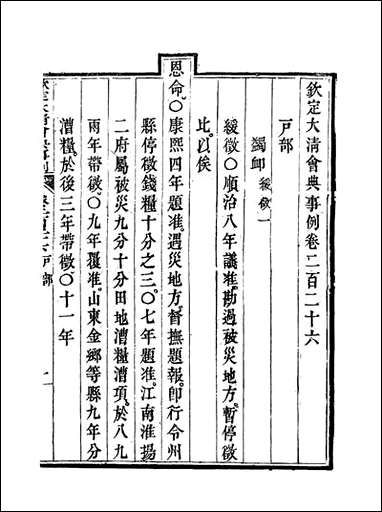 欽定大清會典事例卷二百二十六
戸部
蠲卹 緩徵一
緩徵○順治八年議准勘過被災地方暫停徵
比以俟
恩命○康熙四年題准遇災地方督撫題報即行令州
縣停徵錢糧十分之三○七年題准江南淮揚
二府屬被災九分十分田地漕糧漕項於八九
兩年帶徵○九年覆准山東金鄉等縣九年分
漕糧於後三年帶徵○十一年
戸部
一